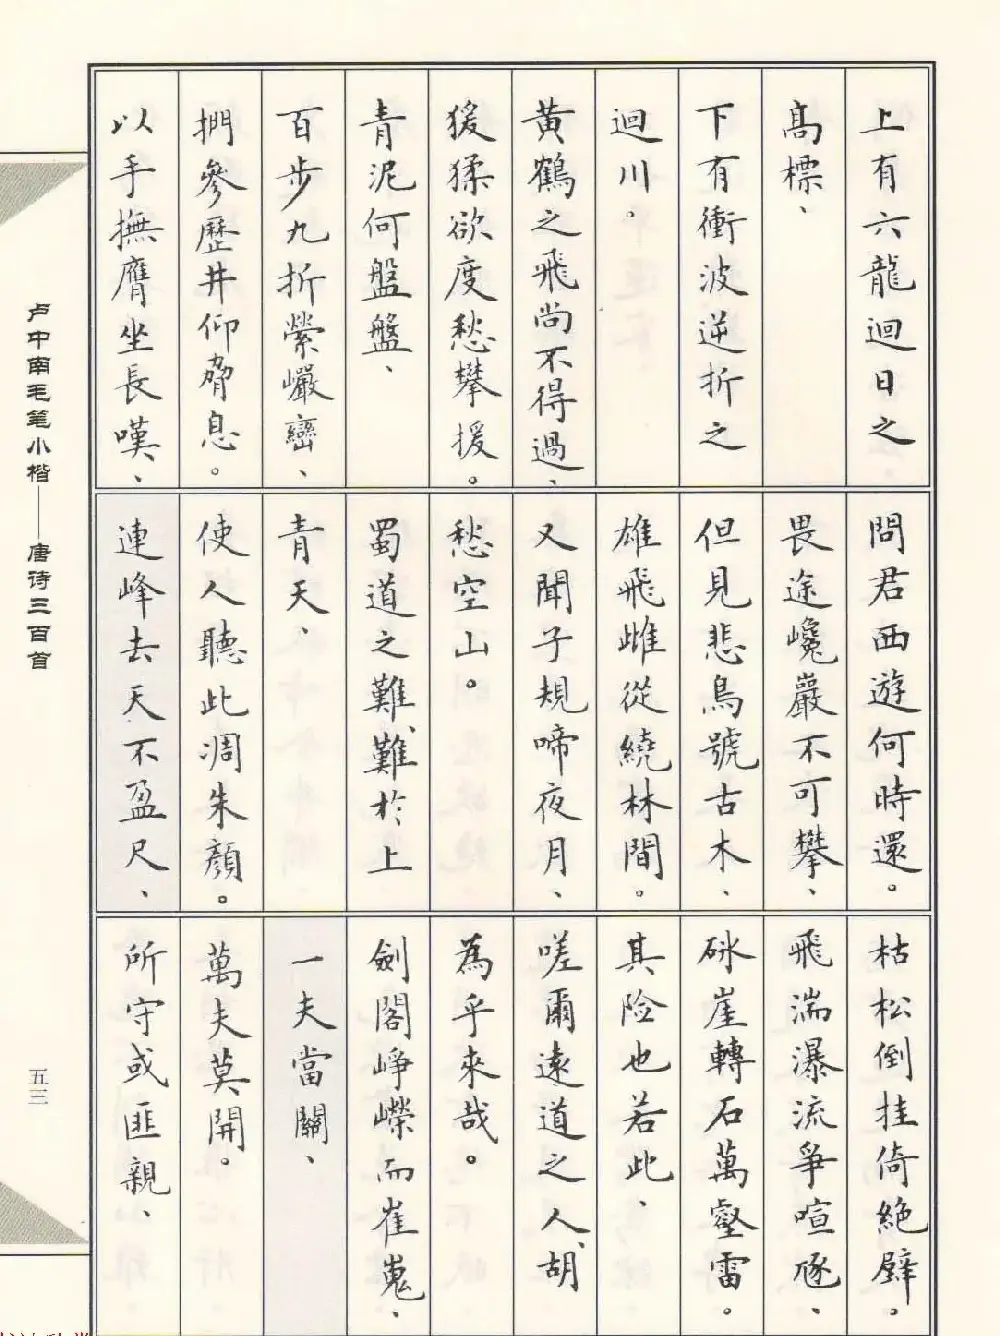 上有六龍迴日之
高標、
下有衝波逆折之
迴川。
黃鶴之飛尚不得過、
猨猱欲度愁攀援。
青泥何盤盤、
百步九折縈巖巒、
捫參歷井仰脅息。
以手撫膺坐長嘆、
問君西遊何時還。
畏途巉巖不可攀、
但見悲鳥號古木、
雄飛雌從繞林間。
又聞子規啼夜月、
愁空山。
蜀道之難、難於上
青天、
使人聽此凋朱顏。
連峰去天不盈尺、
枯松倒挂倚絕壁。
飛湍瀑流爭喧豗、
砯崖轉石萬壑雷。
其險也若此、
嗟爾遠道之人、胡
為乎來哉。
劍閣崢嶸而崔嵬、
一夫當關、
萬夫莫開。
所守或匪親、
卢中南毛笔小楷——唐诗三百首
五三